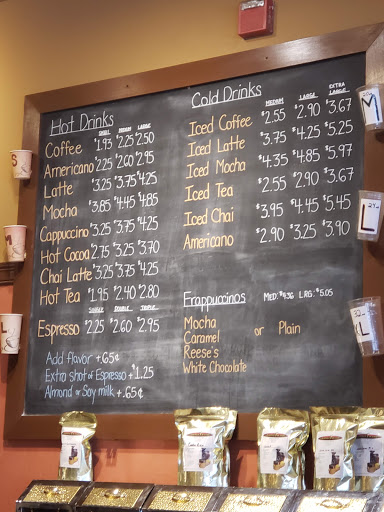 Hot Drinks
SMALL MEDIUM LARGE
Coffee $1.93 $2.25 $2.50
Americano $2.25 $2.60 $2.95
Latte $3.25 $3.75 $4.25
Mocha $3.85 $4.45 $4.85
Cappuccino $3.25 $3.75 $4.25
Hot Cocoa $2.75 $3.25 $3.70
Chai Latte $3.25 $3.75 $4.25
Hot Tea $1.95 $2.40 $2.80
SINGLE DOUBLE TRIPLE
Espresso $2.25 $2.60 $2.95
Add flavor +.65¢
Extra shot of Espresso +$1.25
Almond or Soy milk +.65¢
Cold Drinks
MEDIUM LARGE EXTRA LARGE
Iced Coffee $2.55 $2.90 $3.67
Iced Latte $3.75 $4.25 $5.25
Iced Mocha $4.35 $4.85 $5.97
Iced Tea $2.55 $2.90 $3.67
Iced Chai $3.95 $4.45 $5.45
Americano $2.90 $3.25 $3.90
Frappuccinos MED: $4.36 LRG: $5.05
Mocha
Caramel or Plain
Reese's
White Chocolate
S
L
M
L